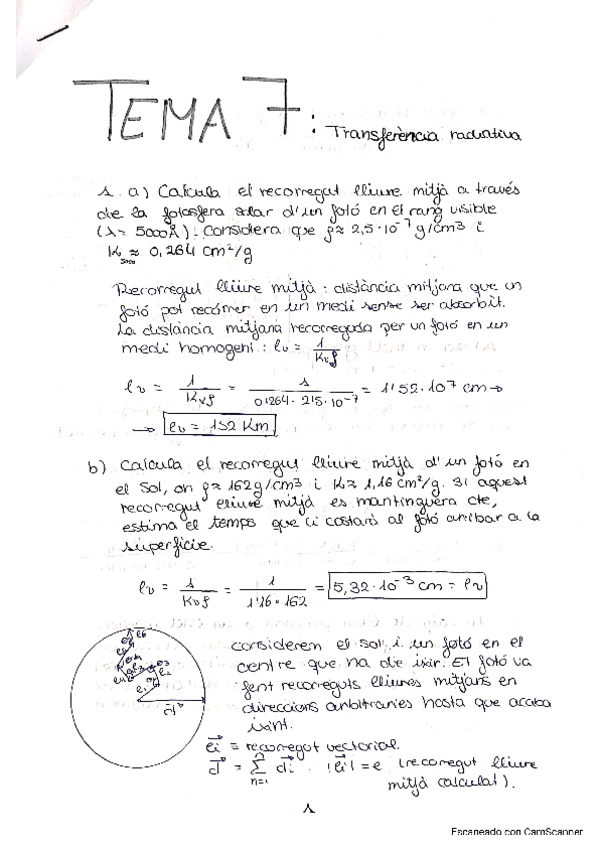 TEMA 7: Transferència radiativa
1. a) Calcula el recorregut lliure mitjà a través
de la fotosfera solar d'un fotó en el rang visible
(λ = 5000Å). Considera que ρ ≈ 2,5·10⁻⁷ g/cm3 i
K₅₀₀₀ ≈ 0,264 cm²/g
Recorregut lliure mitjà: distància mitjana que un
fotó pot recórrer en un medi sense ser absorbit.
La distància mitjana recorreguda per un fotó en un
medi homogeni: lν = 1/Kνρ
lν = 1/Kνρ = 1/0'264·2'5·10⁻⁷ = 1'52·10⁷ cm →
→ lν = 152 Km
b) Calcula el recorregut lliure mitjà d'un fotó en
el Sol, on ρ ≈ 162g/cm3 i K ≈ 1,16 cm²/g. Si aquest
recorregut lliure mitjà es mantinguera cte,
estima el temps que li costarà al fotó arribar a la
superfície.
lν = 1/Kνρ = 1/1'16·162 = 5,32·10⁻³ cm = lν
considerem el sol i un fotó en el
centre que ha de ixir. El fotó va
fent recorreguts lliures mitjans en
direccions arbitraries hasta que acaba
ixint.
l⃗i ≡ recorregut vectorial.
d⃗ = Σ d⃗i. |l⃗i| = l (recorregut lliure
mitjà calculat).
d⃗
1
Escaneado con CamScanner